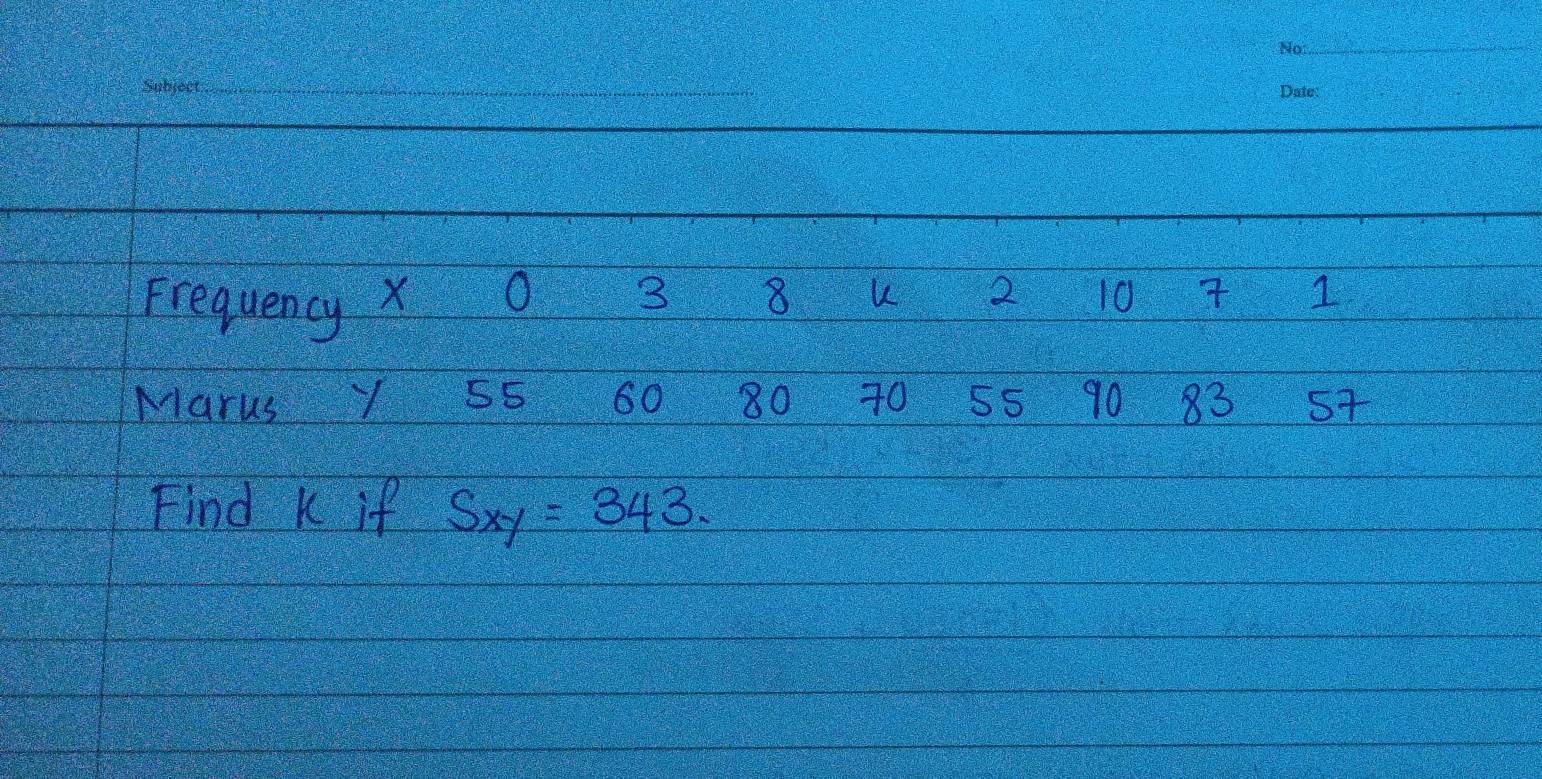 No:
Subject
Date:
Frequency X 0 3 8 k 2 10 7 1
Marks Y 55 60 80 70 55 90 83 57
Find k if Sxy = 343.